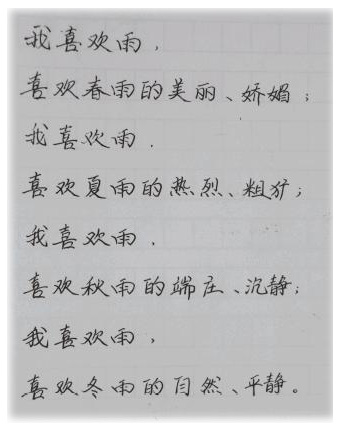 我喜欢雨，
喜欢春雨的美丽、娇媚；
我喜欢雨．
喜欢夏雨的热烈、粗犷；
我喜欢雨．
喜欢秋雨的端庄、沉静；
我喜欢雨，
喜欢冬雨的自然、平静。